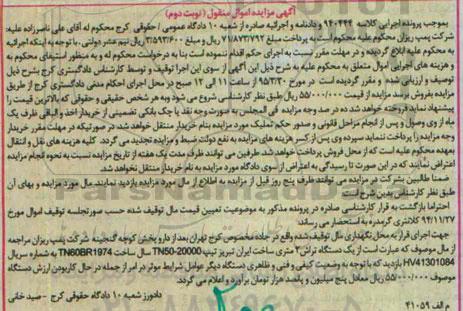 آگهی مزایده اموال منقول (نوبت دوم)
بموجب پرونده اجرایی کلاسه ۹۴۰۴۴۴ و دادنامه و اجرائیه صادره از شعبه ۱۰ دادگاه عمومی / حقوقی کرج محکوم له آقای علی ناصرزاده علیه:
شرکت پمپ ریزان محکوم علیه محکوم است به پرداخت مبلغ ۷۱/۸۷۳/۷۹۲ ریال و مبلغ ۳/۵۹۳/۶۰۰ ریال نیم عشر دولتی. با توجه به اینکه اجرائیه
به محکوم علیه ابلاغ گردیده و در مهلت مقرر نسبت به اجرای حکم اقدام ننموده است بنا به درخواست محکوم له و به منظور استیفای محکوم به
و هزینه های اجرایی اموال متعلق به محکوم علیه به شرح ذیل این آگهی از سوی این اجرا توقیف و توسط کارشناس دادگستری کرج بشرح ذیل
توصیف و ارزیابی شده و مقرر گردیده است در مورخ ۹۵/۳/۳۰ از ساعت ۱۱ الی ۱۲ صبح در محل اجرای احکام مدنی دادگستری کرج از طریق
مزایده بفروش برسد مزایده از قیمت ۵۵/۰۰۰/۰۰۰ ریال طبق نظر کارشناسی شروع می شود و به هر شخص حقیقی و حقوقی که بالاترین قیمت را
پیشنهاد نماید فروخته خواهد شد ده در صد وجه مزایده فی المجلس به صورت وجه نقد یا چک بانکی تضمینی از خریدار اخذ و الباقی ظرف یک
ماه از وی وصول و پس از انجام مراحل قانونی و صدور حکم تملیک مورد مزایده بنام خریدار منتقل خواهد شد، در صورتیکه در مهلت مقرر خریدار
وجه مزایده را پرداخت ننماید سپرده وی پس از کسر هزینه های مزایده به نفع دولت ضبط و مزایده تجدید می گردد. کلیه هزینه های نقل و انتقال
بعهده محکوم علیه است که از محل فروش پرداخت خواهد شد. طرفین می توانند ظرف مدت یک هفته از تاریخ مزایده نسبت به نحوه انجام مزایده
اعتراض نمایند که در این صورت تا رسیدگی به اعتراض از سوی دادگاه مورد مزایده به نام خریدار منتقل نخواهد شد.
ضمنا طالبین شرکت در مزایده می توانند ظرف پنج روز قبل از مزایده به اطلاع از مال مورد مزایده بازدید نمایند. مال مورد مزایده و بهای آن
طبق نظر کارشناس بدین شرح است
احتراما بازگشت به قرار کارشناسی صادره در پرونده مذکور به موضوعیت تعیین قیمت مال توقیف شده حسب صورتجلسه توقیف اموال مورخ
۹۴/۱۱/۲۷ کلانتری گرمدره به استحضار می رساند:
جهت اجرای قرار به محل نگهداری مال توقیف شده واقع در جاده مخصوص کرج تهران بعد از دارو پخش کوچه گنجینه شرکت پمپ ریزان مراجعه
از مال موصوف که عبارت است از یک دستگاه تراش ۲ متری ساخت ایران تبریز تیپ TN50-20000 سال ساخت TN60BR1974 به شماره سریال
HV41301084 بازدید که با توجه به وضعیت کیفی و فنی و ظاهری دستگاه دیگر عوامل شرایط موثر در امر از جمله در حال کاربودن ارزش دستگاه
موصوف ۵۵/۰۰۰/۰۰۰ ریال معادل پنج میلیون و پانصد هزار تومان برآورد و اعلام می گردد.
دادورز شعبه ۱۰ دادگاه حقوقی کرج - صید خانی
م الف ۴۱۰۵۹